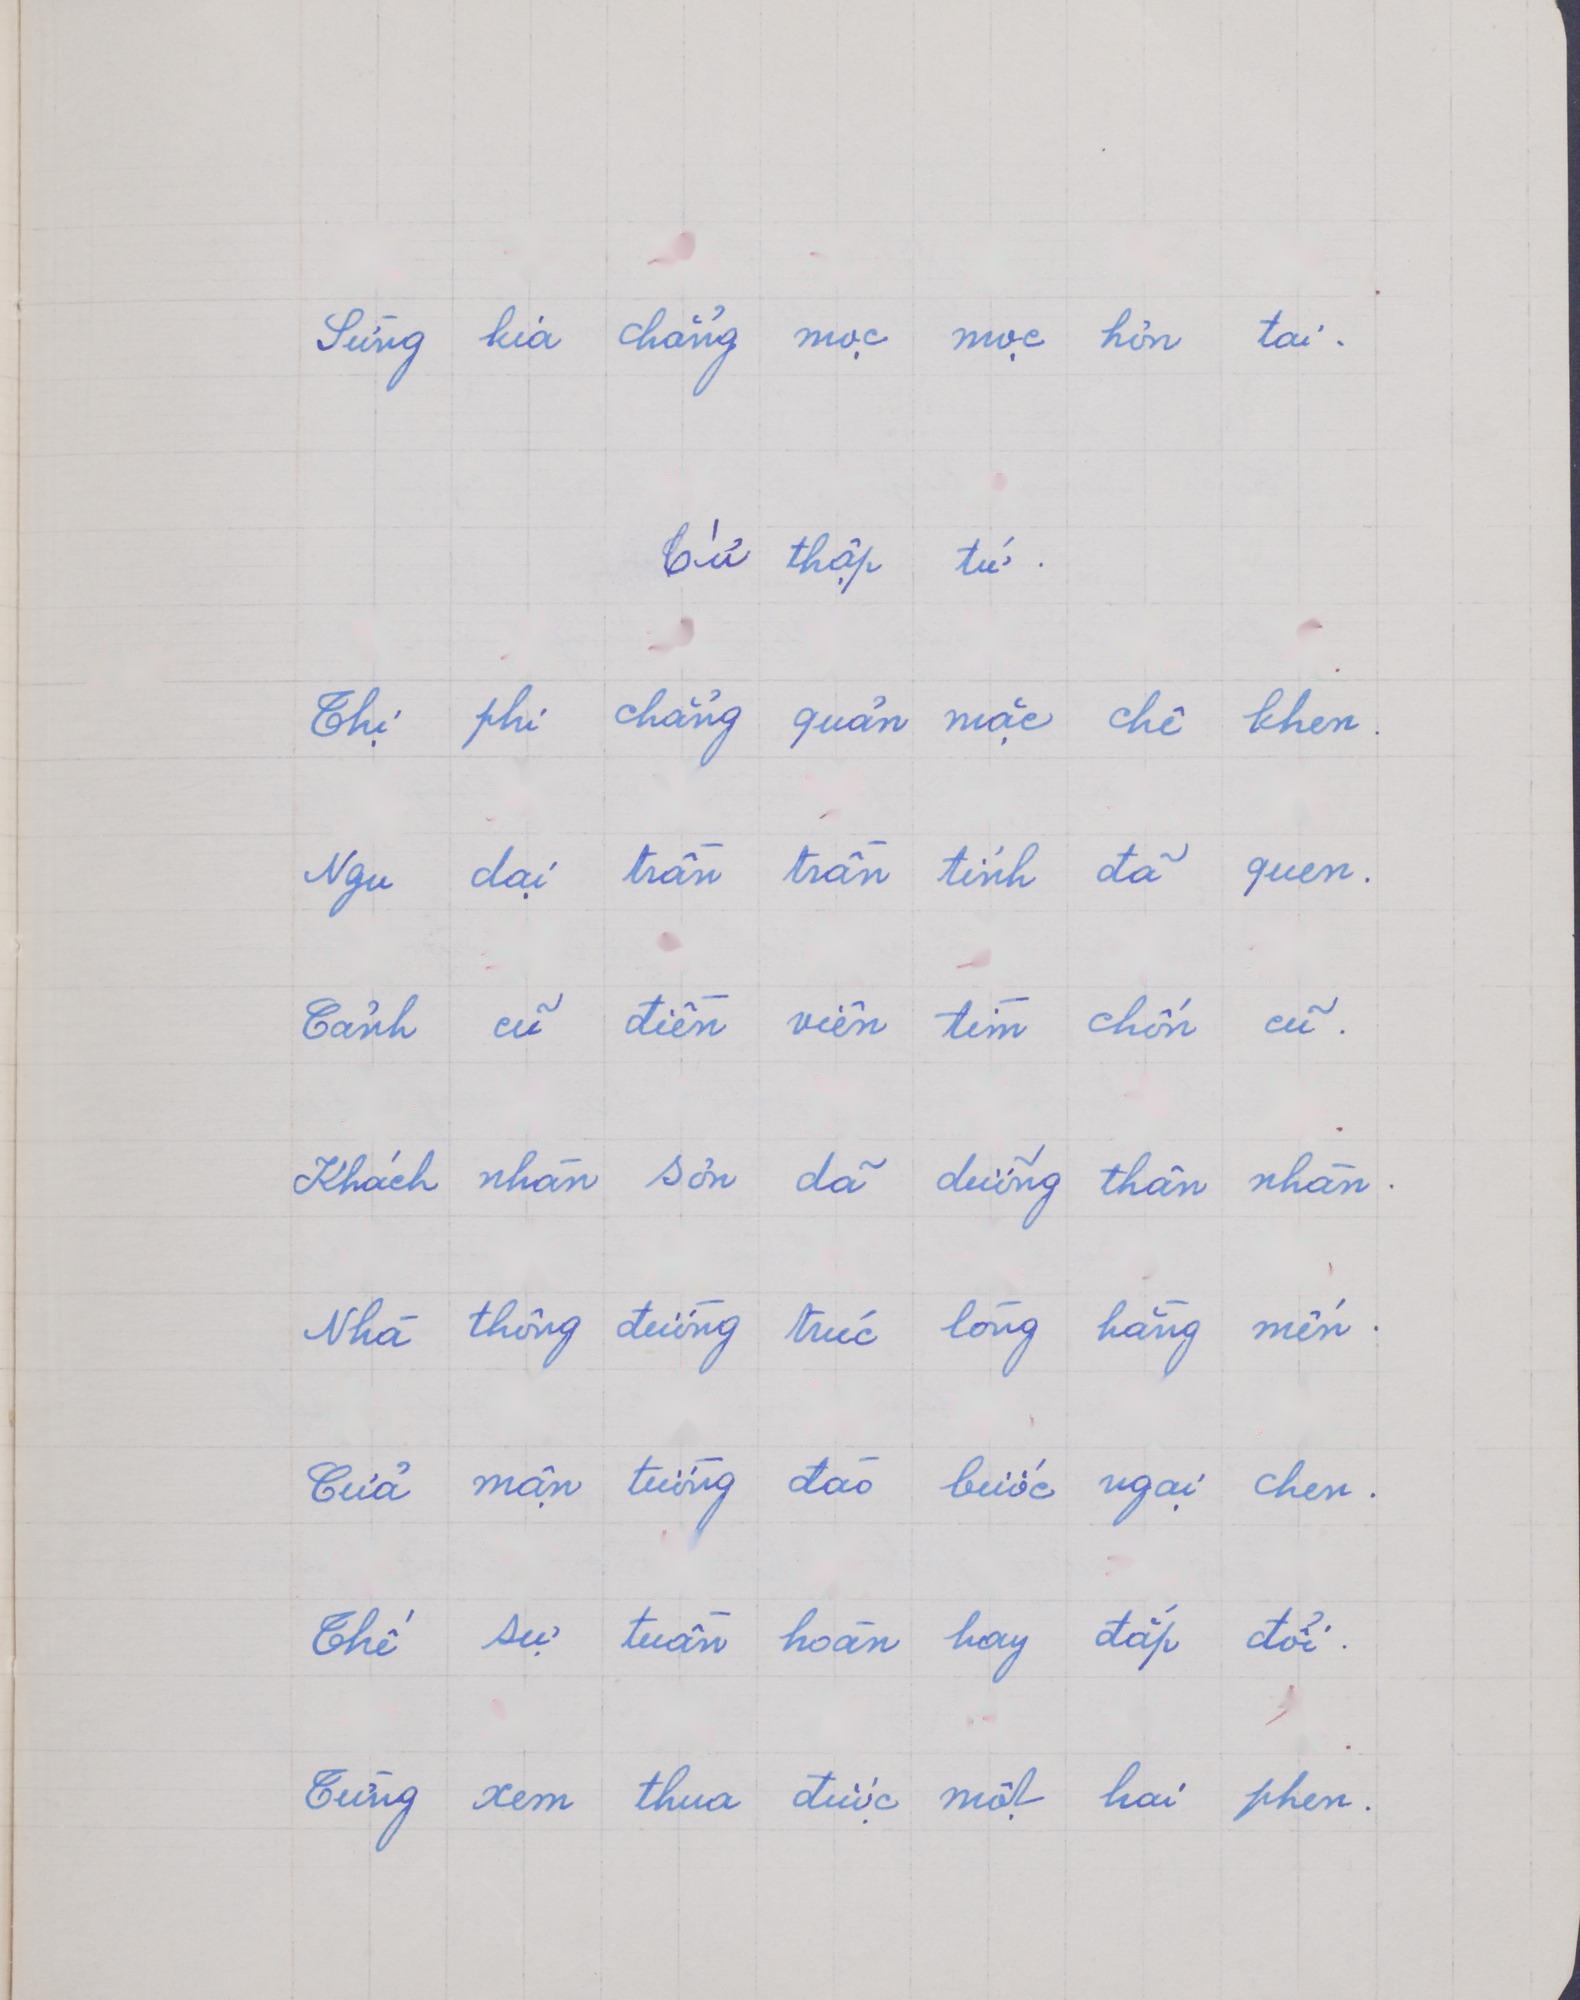 Sừng kia chẳng mọc mọc hơn tai.
Cửu thập tứ.
Thị phi chẳng quản mặc chê khen.
Ngu dại trần trần tính đã quen.
Cảnh cũ điền viên tìm chốn cũ.
Khách nhàn sơn dã dưỡng thân nhàn.
Nhà thông đường trúc lòng hằng mến.
Cửa mận tường đào bước ngại chen.
Thế sự tuần hoàn hay đắp đổi.
Từng xem thua được một hai phen.